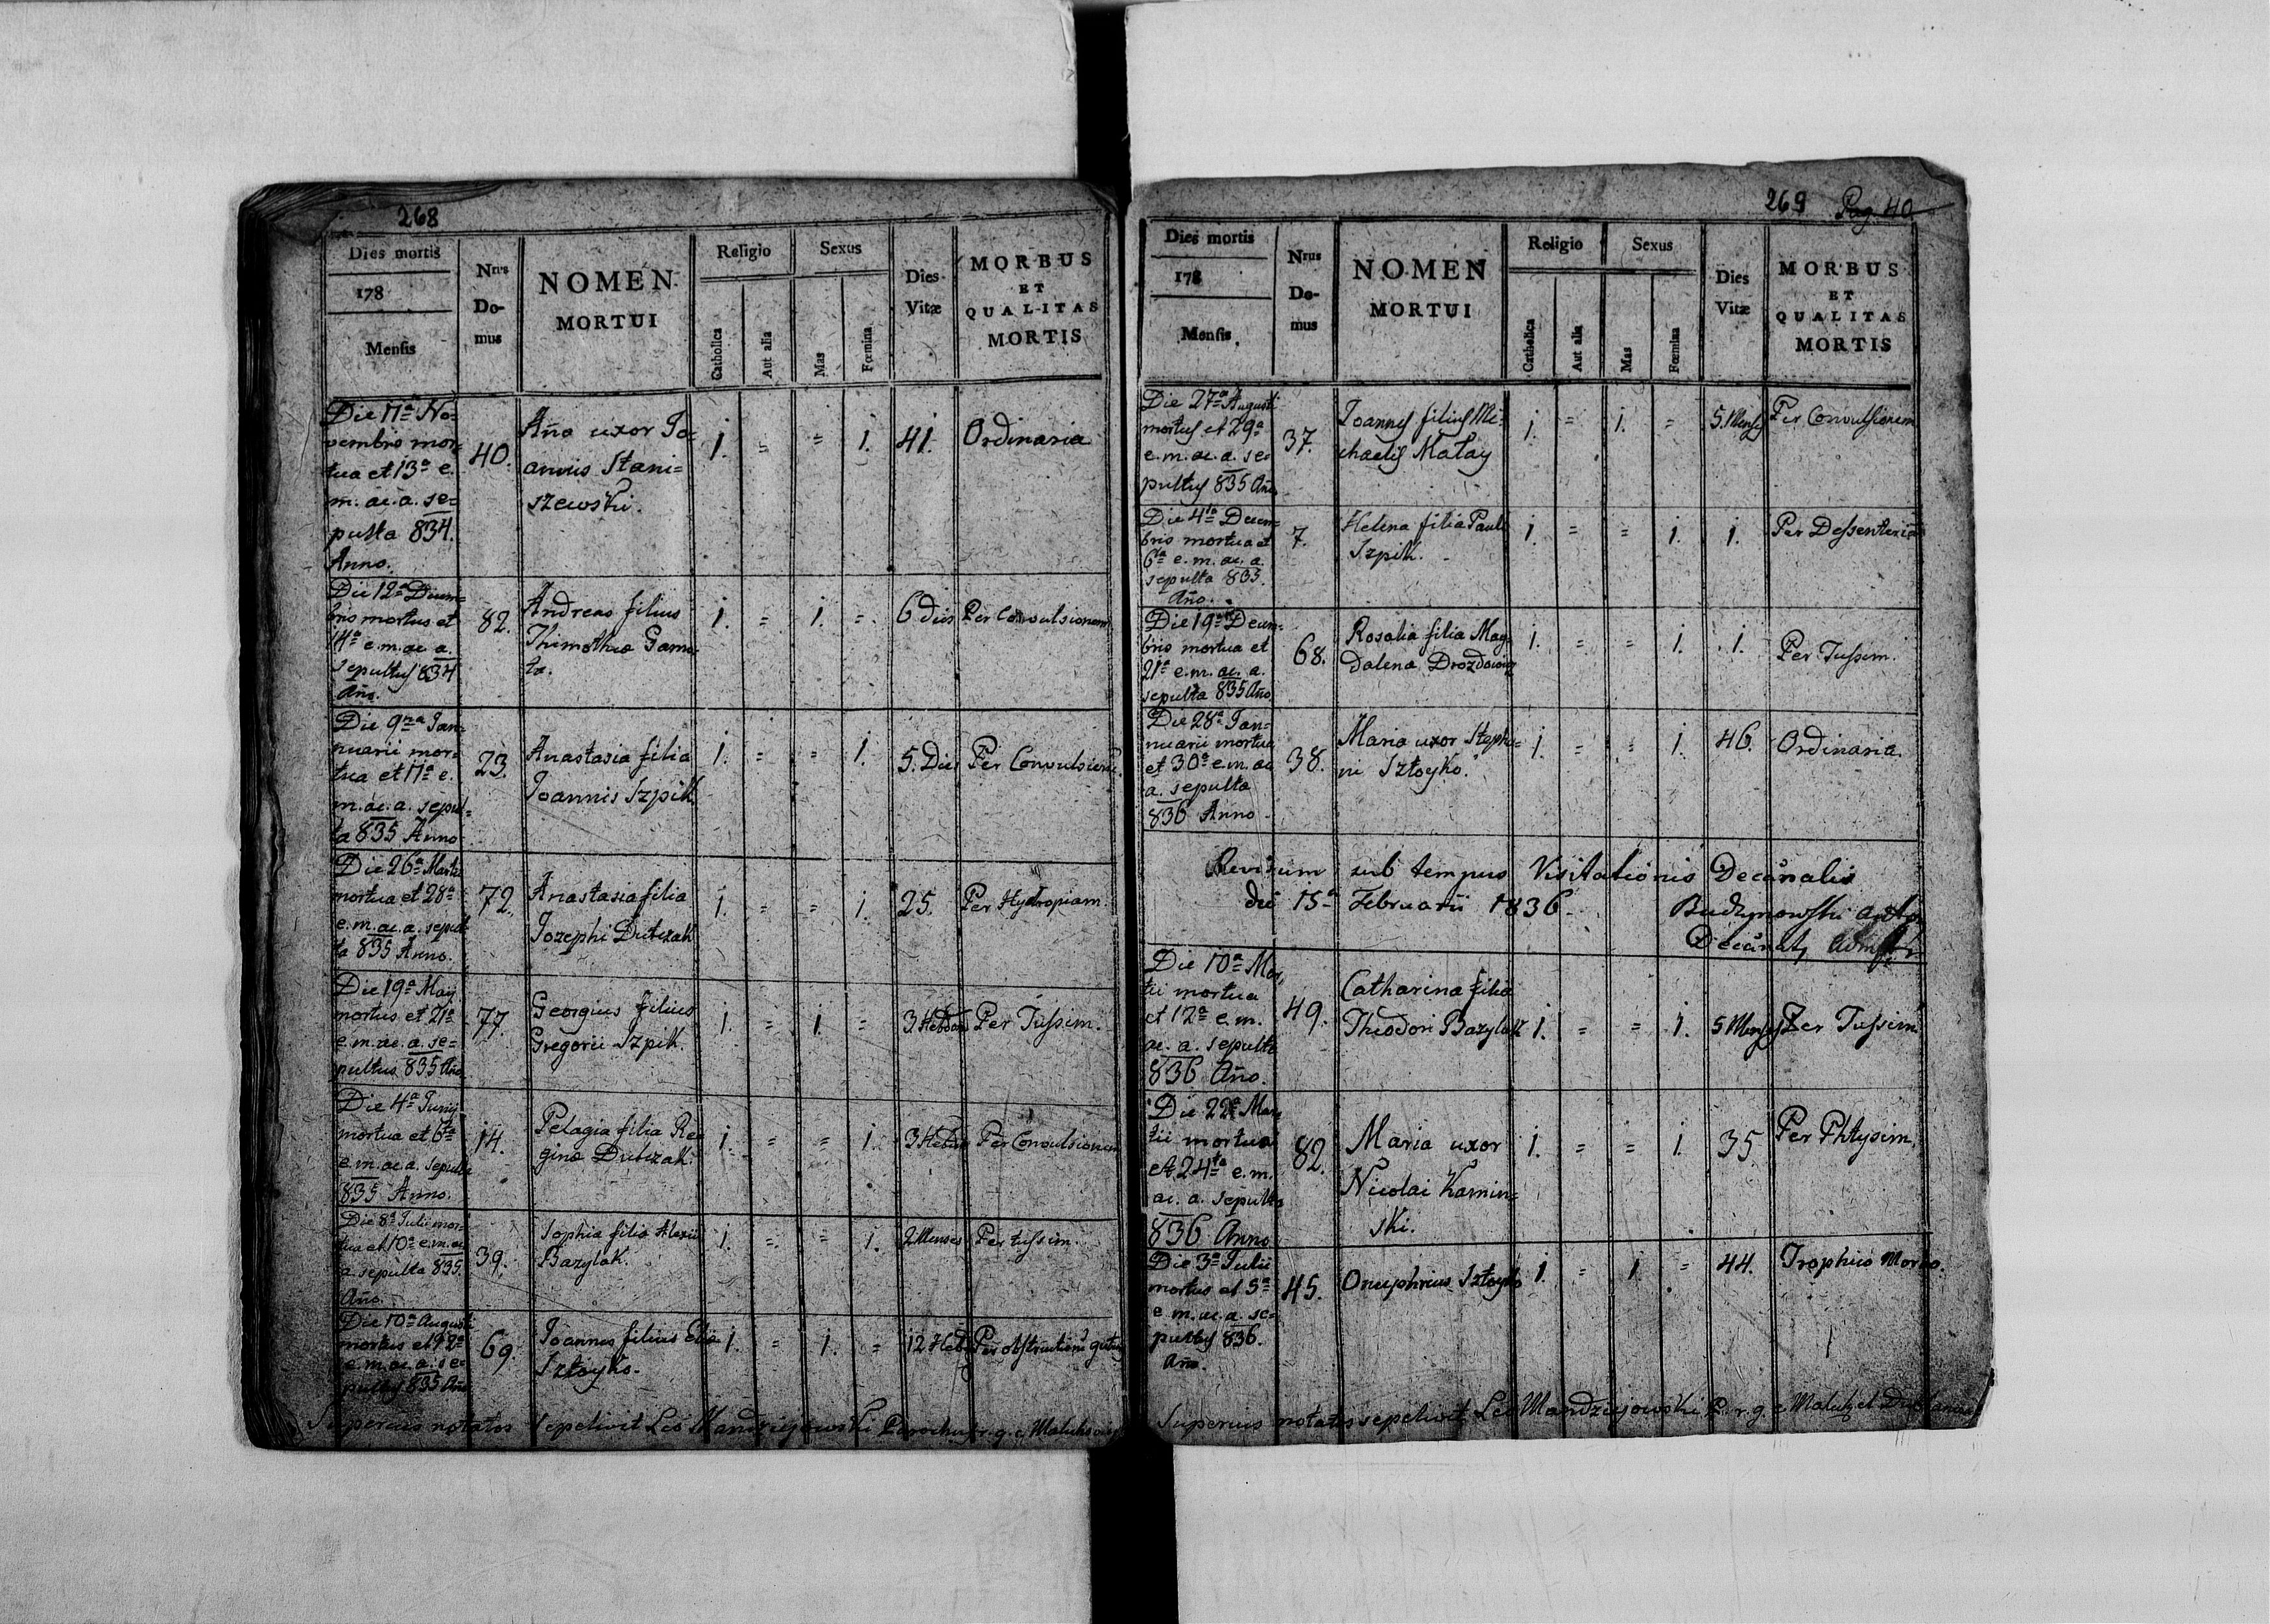 268
Dies mortis
178
Mensis
Nrus
Do-
mus
NOMEN
MORTUI
Religio
Catholica
Aut alia
Sexus
Mas
Fœmina
Dies
Vitæ
MORBUS
ET
QUALITAS
MORTIS
Die 11a No=
vembris mor=
tua et 13a e.
m. ac. a. se=
pulta 834.
Anno.
40.
Aña uxor Jo=
annis Stani=
szewski.
1. = = 1.
41.
Ordinaria
Die 12a Decem=
bris mortus et
14a e.m. ac a.
sepultus 834
Año.
82.
Andreas filius
Thimothea
1. = 1. =
6 dies
Per Convulsionem
Die 9na Jan=
nuarii mor=
tua et 11a e.
m. ac. a. sepul=
ta 835 Anno
23.
Anastasia filia
Joannis Szpik
1. = = 1.
5. Dies
Per Convulsionem.
Die 26a Martii
mortua et 28a
e. m. ac. a. sepul=
ta 835 Anno.
72.
Anastasia filia
Jozephi Dubczak
1. = = 1.
25.
Per Hydropiam.
Die 19a May
mortus et 21a
e. m. ac. a. se=
pultus 835 Año
77.
Georgius filius
Gregorii Szpik.
1. = 1. =
3 Hebdom
Per Tussim.
Die 4a Junij
mortua et 6ta
e. m. ac a. sepulta
835 Anno.
14.
Pelagia filia Re=
gina Dubczak.
1. = = 1.
3 Hebd
Per Convulsionem
Die 8a Julii mor=
tua et 10a e. m. ac
a. sepulta 835.
Año.
39.
Sophia filia Alexii
Bazylak.
1. = = 1.
2 Menses
Per tussim.
Die 10a Augusti
mortus et 12a
e. m. ac. a. se=
pultus 835 Año
69.
Joannes filius Eliæ
Sztoyko.
1. = 1. =
12 Hebd
Per obstructione gutu
Superius notatos sepelivit Leo Mandziejowski Parochus r. g. c.
269 Pag. 40
Dies mortis
178
Mensis
Nrus
Do-
mus
NOMEN
MORTUI
Religio
Catholica
Aut alia
Sexus
Mas
Fœmina
Dies
Vitæ
MORBUS
ET
QUALITAS
MORTIS
Die 27a Augusti
mortus et 29a
e. m. ac. a. se=
pultus 835 Año
37.
Joannes filius Mi=
chaelis Matay
1. = 1. =
5. Menses
Per Convulsionem
Die 4ta Decem=
bris mortua et
6ta e. m. ac. a.
sepulta 835.
Año.
7.
Helena filia Pauli
Szpik.
1. = = 1.
1.
Per Dessenteriam
Die 19a Decem=
bris mortua et
21a e. m. ac. a.
sepulta 835 Año
68.
Rosalia filia Mag=
dalena
1. = = 1.
1.
Per Tussim.
Die 28a Jan=
nuarii mortua
et 30a e. m. ac
a. sepulta
836 Anno
38.
Maria uxor Stepha=
ni Sztoyko.
1. = = 1.
46.
Ordinaria
Revisum sub tempus Visitationis Decanalis
die 15a Februarii 1836.
Budzynowski
Die 10a Mar=
tii mortua
et 12a e. m.
ac. a. sepulta
836 Año.
49.
Catharina filia
Theodori Bazylak
1. = = 1.
5 Menses
Per Tussim
Die 22a Mar=
tii mortua
et 24ta e. m.
ac. a. sepulta
836 Anno
82.
Maria uxor
Nicolai Kamin=
ski.
1. = = 1.
35
Per Phtysim.
Die 3a Julii
mortus et 5a
e. m. ac. a. se=
pultus 836.
Año.
45.
Onuphrius Sztoyko
1. = 1. =
44.
Trophico Morbo.
Superius notatos sepelivit Leo Mandziejowski P. r. g. c.